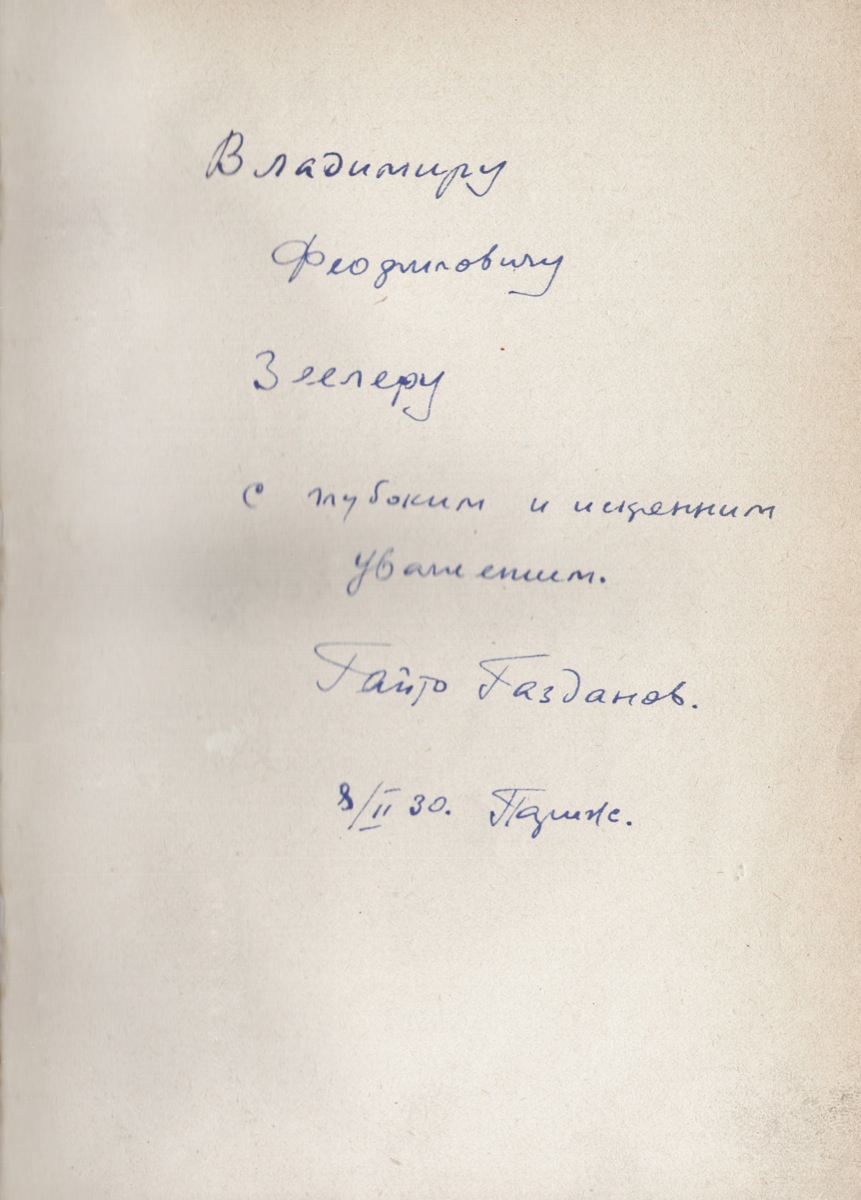 Владимиру
Феофиловичу
Зеелеру
с глубоким и искренним
уважением.
Гайто Газданов.
8/II 30. Париж.